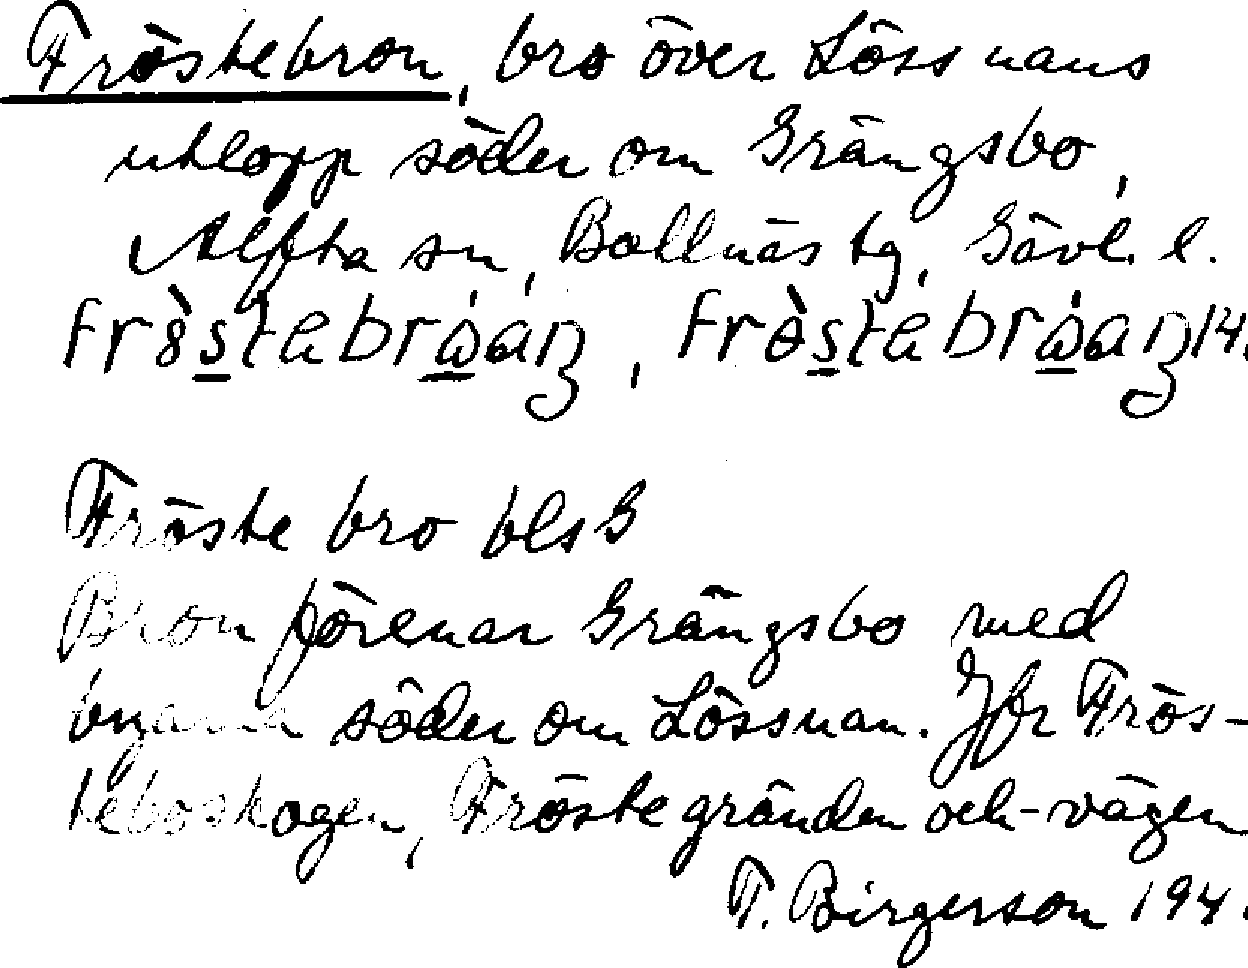 Fröstebron, bro över Lössnans
utlopp söder om Grängsbo,
Alfta sn, Bollnäs tg, Gävl. l.
Fröste bro bls G
Bron förenar Grängsbo med
byarna söder om Lössnan. Jfr Frös-
teboskogen, Fröstegränden och -vägen
T. Birgerson 194